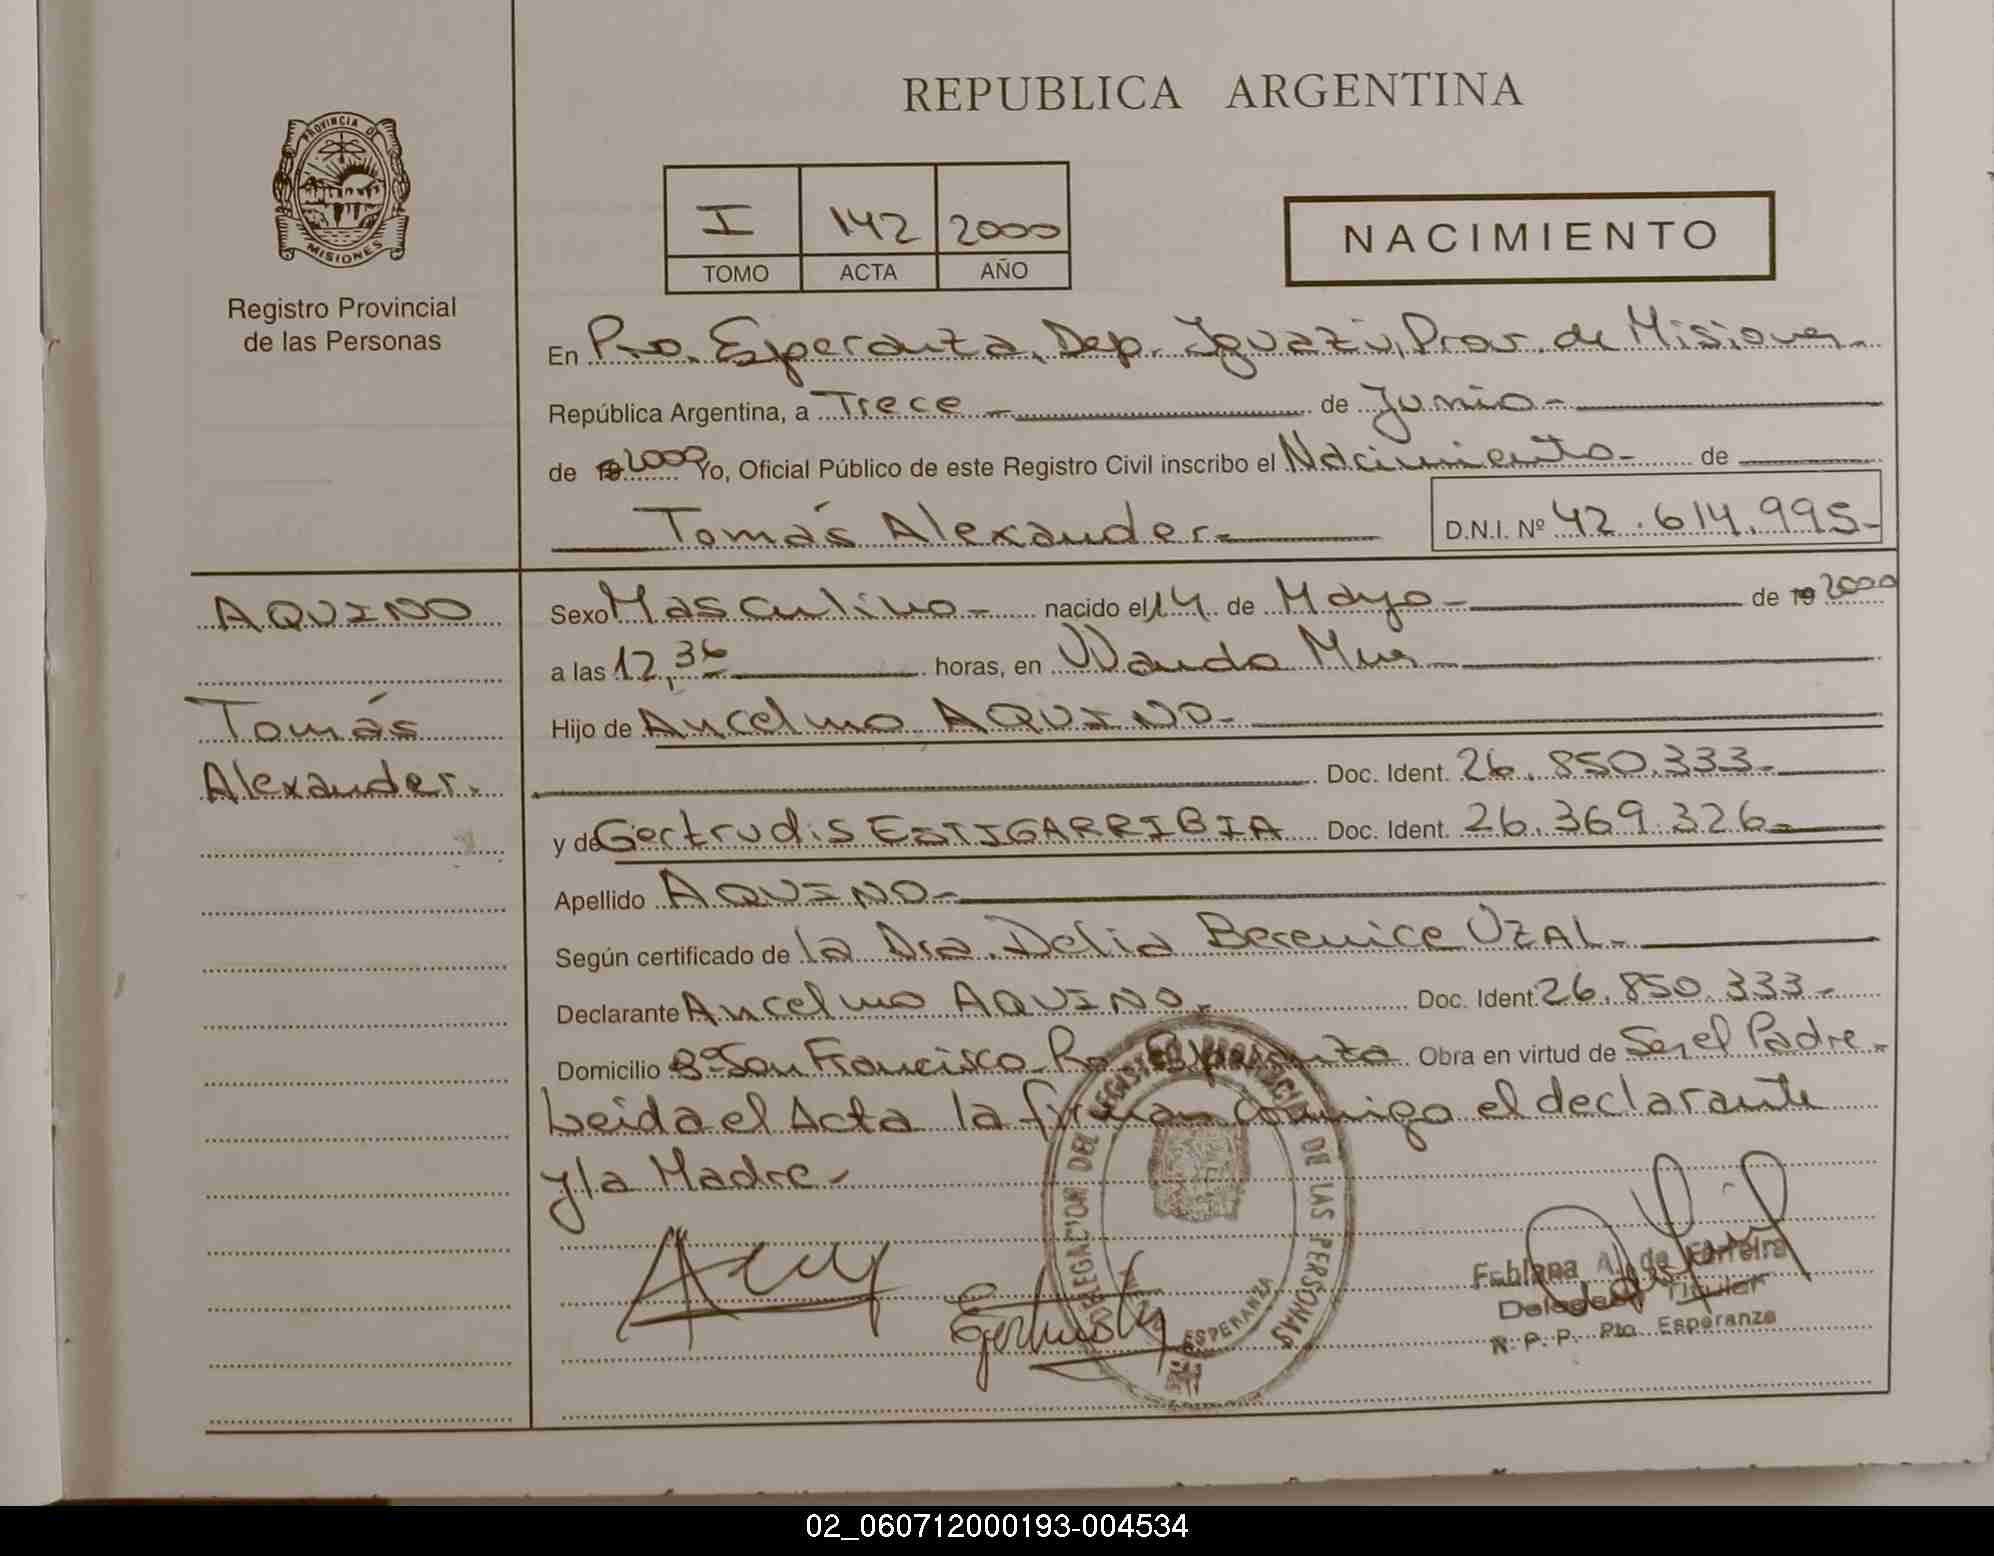 REPUBLICA ARGENTINA
PROVINCIA D
MISIONES
Registro Provincial
de las Personas
I 142 2000
TOMO ACTA AÑO
NACIMIENTO
En Pto. Esperanza, Dep. Iguazú, Prov. de Misiones
República Argentina, a Trece de Junio
de 19 2000 Yo, Oficial Público de este Registro Civil inscribo el Nacimiento de
Tomás Alexander D.N.I. Nº 42.614.995
AQUINO
Tomás
Alexander.
Sexo Masculino nacido el 14 de Mayo de 19 2000
a las 12,36 horas, en Wanda Mnes
Hijo de Ancelmo AQUINO
Doc. Ident. 26.850.333
y de Gertrudis ESTIGARRIBIA Doc. Ident. 26.369.326
Apellido AQUINO
Según certificado de la Dra. Delia Berenice UZAL
Declarante Ancelmo AQUINO Doc. Ident. 26.850.333
Domicilio Bº San Francisco Pto. Esperanza Obra en virtud de Ser el Padre
Leida el Acta la firman conmigo el declarante
y la Madre
DELEGACION DEL REGISTRO PROVINCIAL DE LAS PERSONAS
ESPERANZA
Fabiana A. de Ferreira
Delegada Titular
R. P. P. Pto. Esperanza
02_060712000193-004534